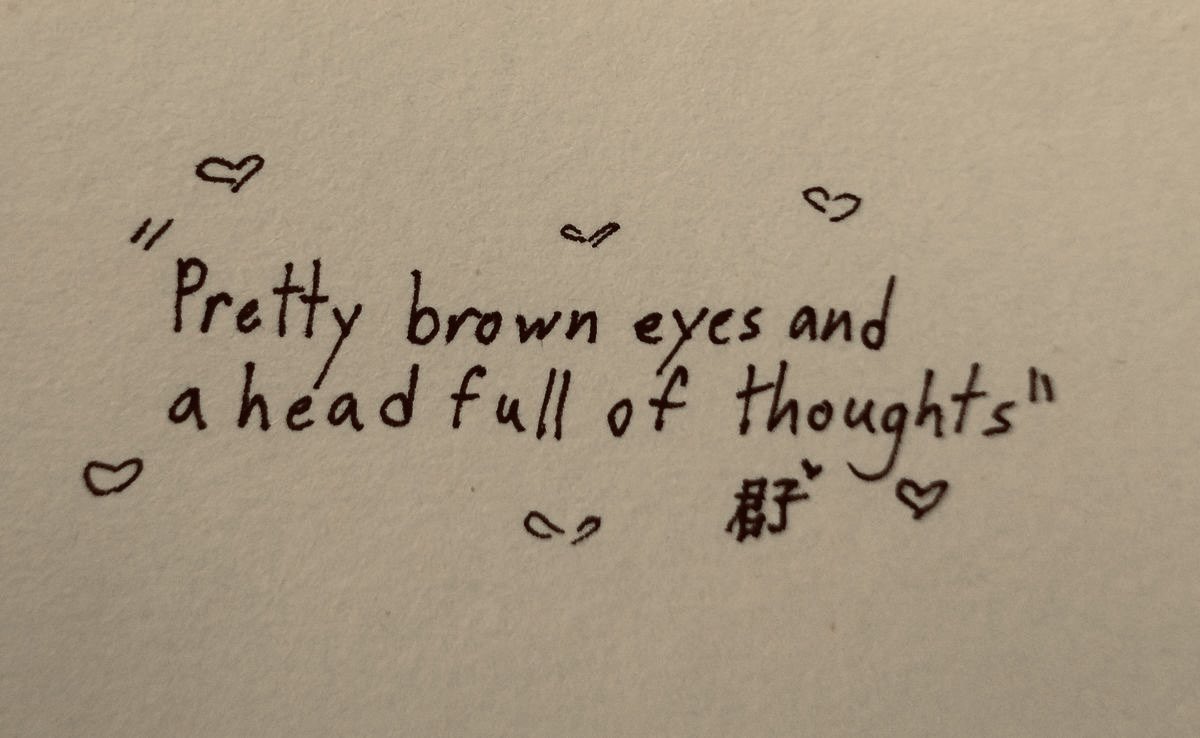 "Pretty brown eyes and
a head full of thoughts"
君子